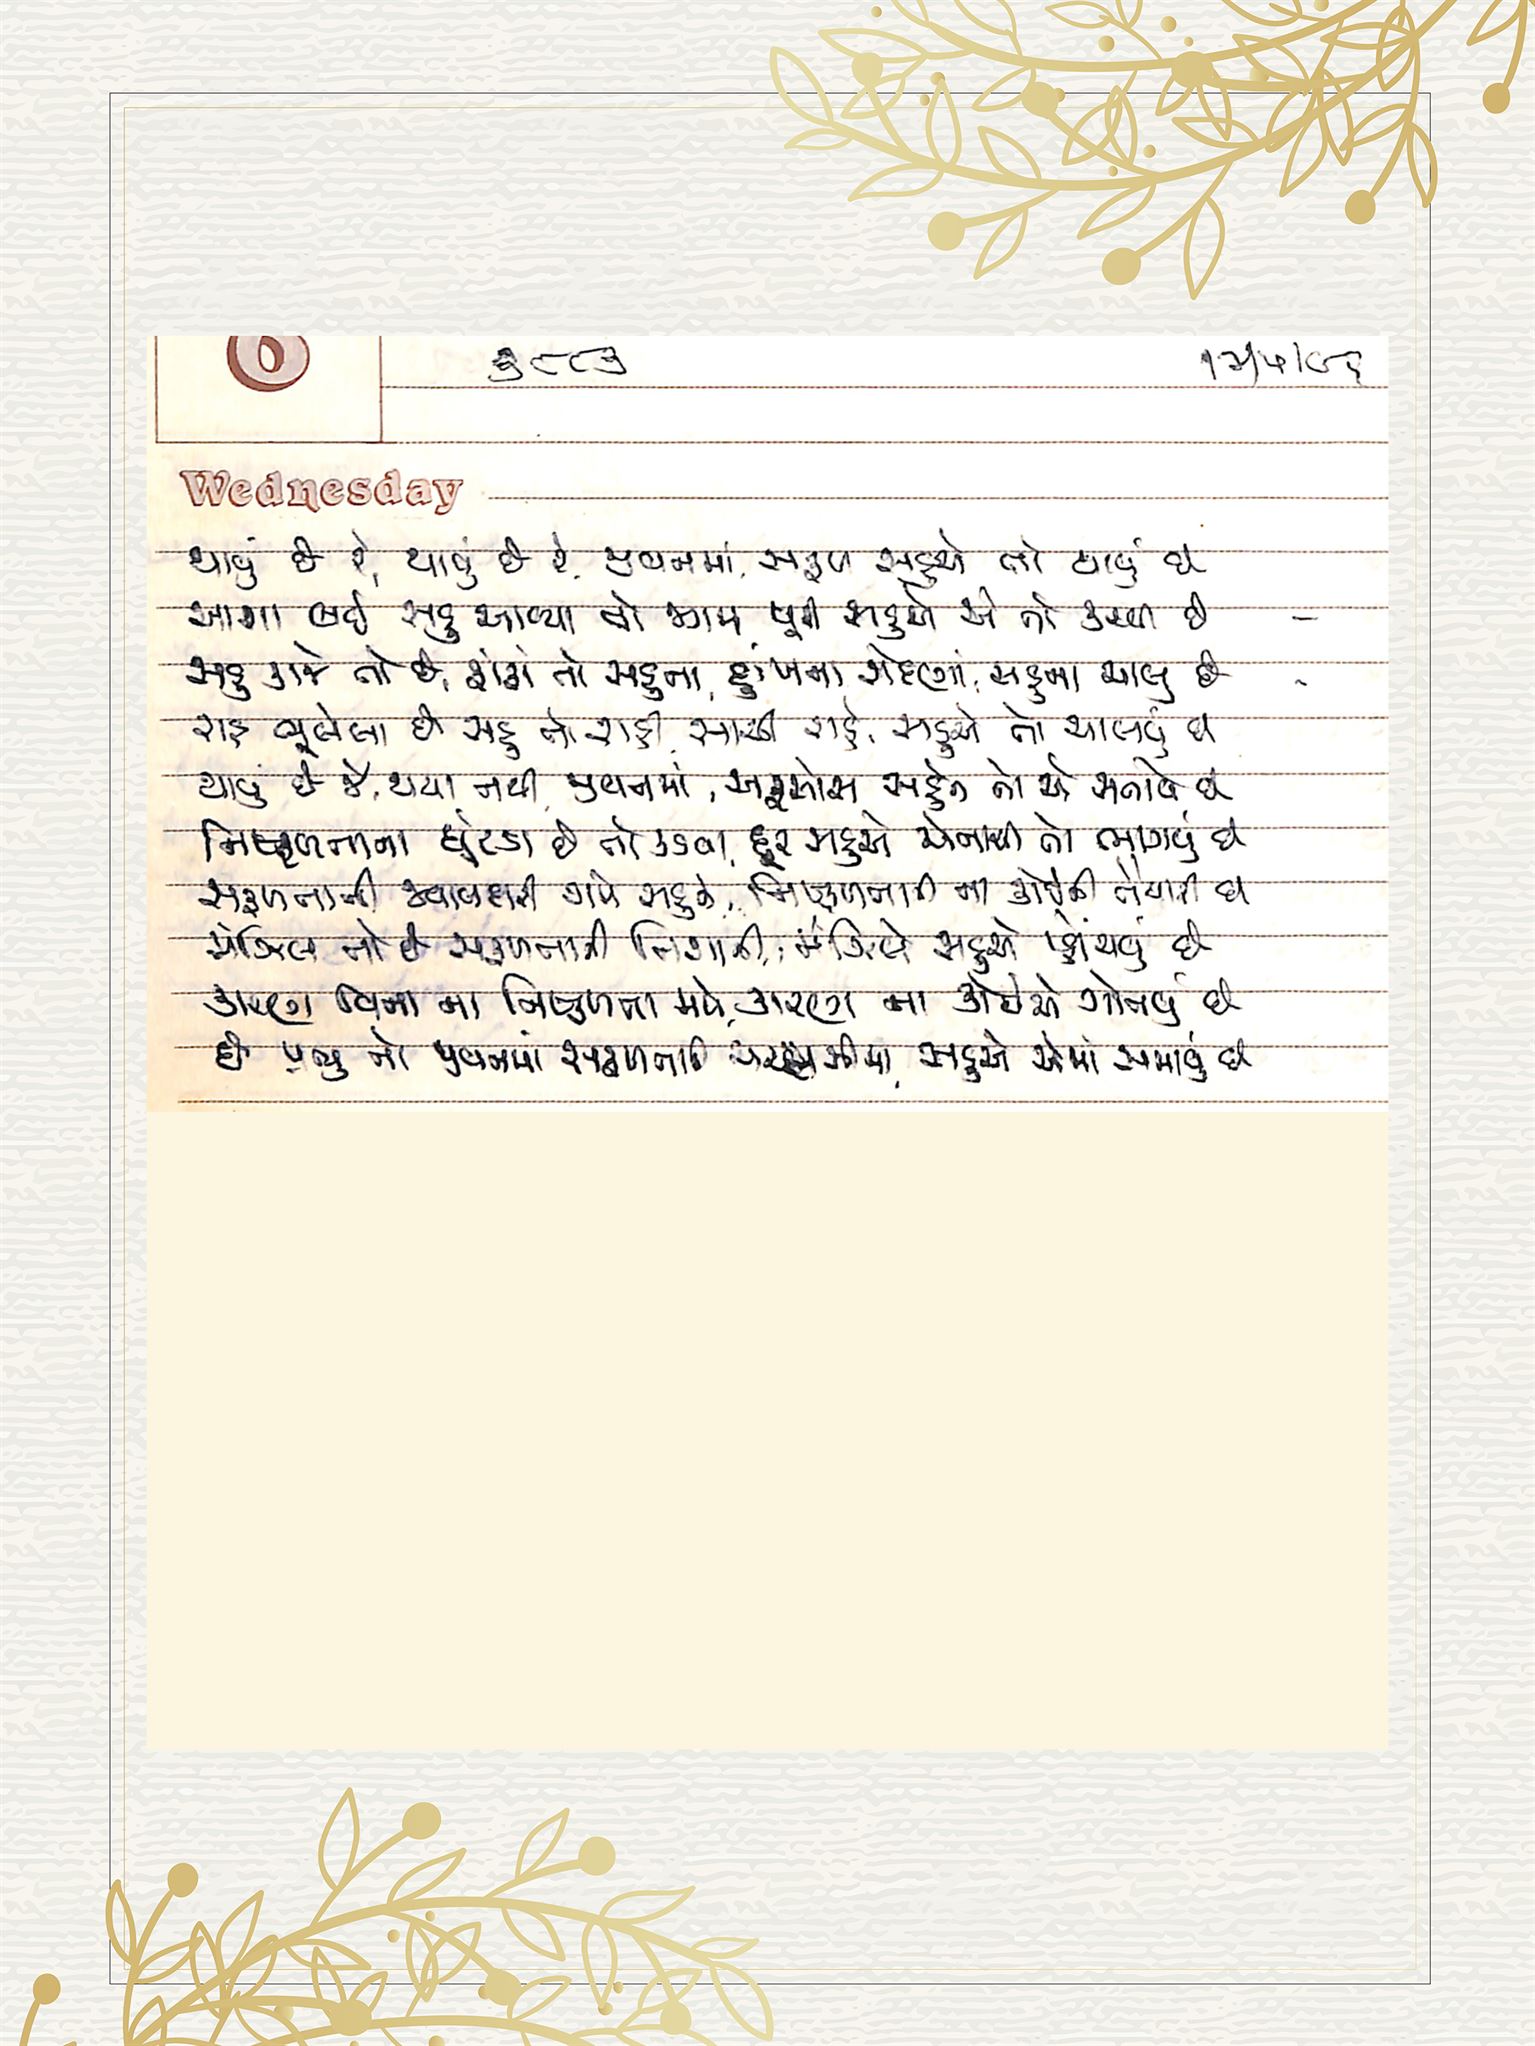 6 ૩૮૮૩ ૧૨/૫/૯૨
Wednesday
થાવું છે રે, થાવું છે રે, જીવનમાં, સફળ સહુએ તો થાવું છે
આશા લઈ સહુ આવ્યા જે કામ, પૂરી સહુએ એ તો કરવી છે -
સહુ કાજે તો છે, સહુના, દુઃખના, સહુના ચાલુ છે
રાહ ભૂલેલા છે સહુ તો રાહી, સાચી રાહે, સહુએ તો ચાલવું છે
થાવું છે જે, થયા નથી, જીવનમાં, અફસોસ સહુને તો એ સતાવે છે
નિષ્ફળતાના ઘૂંટડા છે તો કડવા, દૂર સહુએ એનાથી તો ભાગવું છે
સફળતાની ગમે સહુને, નિષ્ફળતાની ના કોઈની તૈયારી છે
મંઝિલ તો છે સફળતાની નિશાની, મંઝિલે સહુએ પહોંચવું છે
કારણ વિના ના નિષ્ફળતા મળે, કારણ ના કોઈએ ગોતવું છે
છે પ્રભુ તો જીવનમાં સફળતાની સીમા, સહુએ એમાં સમાવું છે